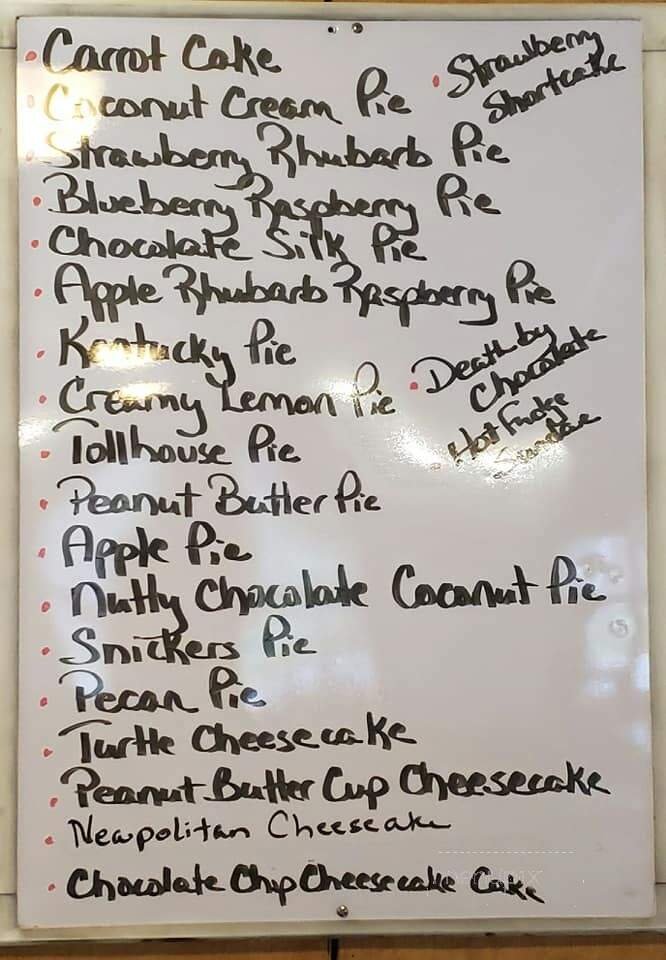 Carrot Cake
Coconut Cream Pie
Strawberry Rhubarb Pie
Blueberry Raspberry Pie
Chocolate Silk Pie
Apple Rhubarb Raspberry Pie
Kentucky Pie
Creamy Lemon Pie
Tollhouse Pie
Peanut Butter Pie
Apple Pie
Nutty Chocolate Coconut Pie
Snickers Pie
Pecan Pie
Turtle Cheesecake
Peanut Butter Cup Cheesecake
Neapolitan Cheesecake
Chocolate Chip Cheesecake Cake
Strawberry
Shortcake
Death by
Chocolate
Hot Fudge
Sundae